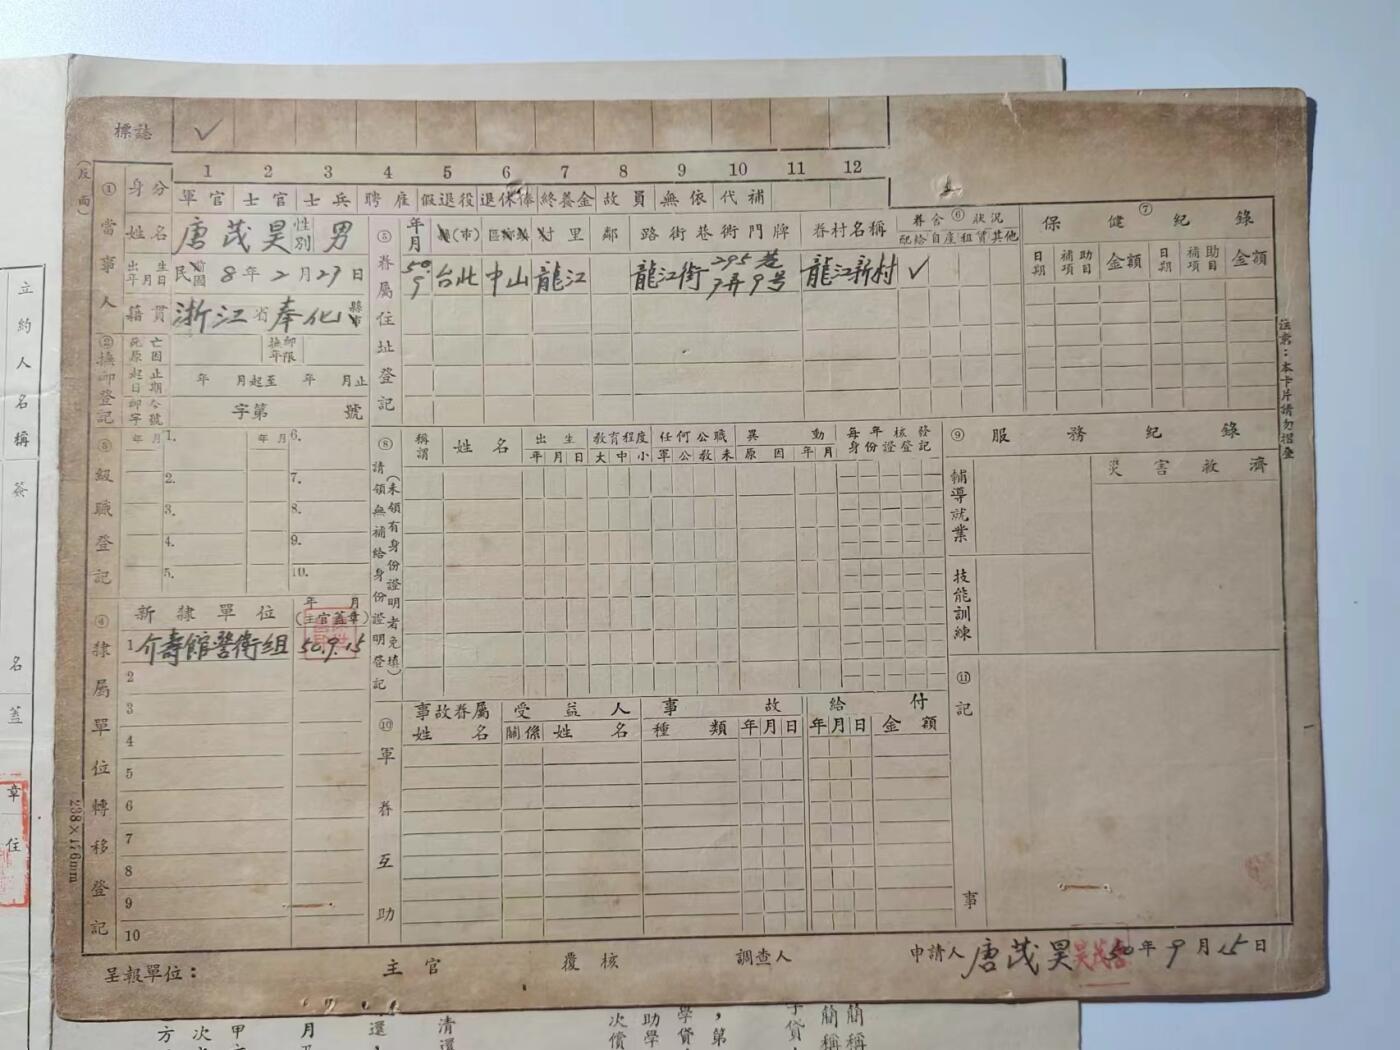 標誌 ✓
1 2 3 4 5 6 7 8 9 10 11 12
(反面)
①當事人
身分 軍官 士官 士兵 聘雇 假退役 退休俸 終養金 故員 無依 代補
姓名 唐茂昊 性別 男
出生年月日 民國前 8年2月29日
籍貫 浙江省奉化縣市
②撫卹登記
死亡原因 撫卹年限
起止日期 年 月起至 年 月止
卹令字號 字第 號
③級職登記
年 月 1. 年 月 6.
2. 7.
3. 8.
4. 9.
5. 10.
④隸屬單位轉移登記
新隸單位 年 月 (主官蓋章)
1 介壽館警衛組 50.9.15
2
3
4
5
6
7
8
9
10
238×176mm
⑤眷屬住址登記
年月 縣(市) 區鄉鎮 村里 鄰 路街巷衖門牌 眷村名稱
⑥眷舍狀況
配給 自產 租賃 其他
50.9 台北 中山 龍江 龍江街295巷9弄9号 龍江新村 ✓
⑦保健紀錄
日期 補助項目 金額 日期 補助項目 金額
⑧請領無補給身份證明登記
(未領有身份證明者免填)
稱謂 姓名 出生 教育程度 任何公職 異動 每年核發身份證登記
年 月 日 大 中 小 軍 公 教 未 原因 年 月
⑨服務紀錄
輔導就業 災害救濟
技能訓練
⑩軍眷互助
事故眷屬 受益人 事故 給付
姓名 關係 姓名 種類 年 月 日 年 月 日 金額
⑪記事
注意:本卡片請勿摺疊
呈報單位: 主官 覆核 調查人 申請人 唐茂昊 50年9月15日
立約人名稱簽
名蓋章住